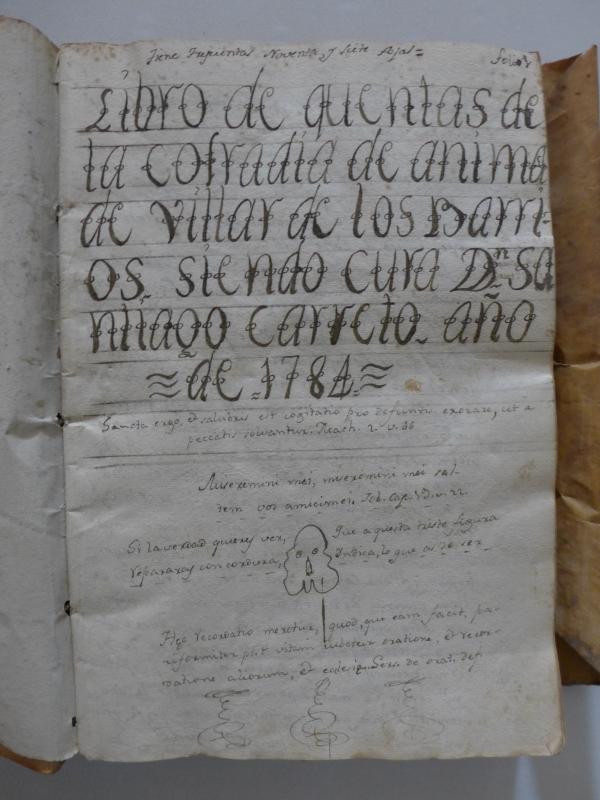 Tiene Trecientas Noventa, y siete ojas=
folio 1
Libro de quentas de
la cofradia de anima
de villar de los Barri-
os, siendo cura Dn. Sa
ntiago Carreto, año
≈ de 1784 ≈
Sancta ergo, et salubris est cogitatio pro defunctis exorare, ut a
peccatis solvantur. Mach. 2. v. 46
Miseremini mei, miseremini mei sal-
tem vos amici mei. Job. Cap. 19. v. 22.
Si la verdad quieres ver,
repararas con cordura,
Que aquesta triste figura
Indica, lo que as de ser
recordatio meretur, quod, que eam facit, pa-
riformiter post vitam oratione, et recor-
datione aliorum, et Ser. de orat. def